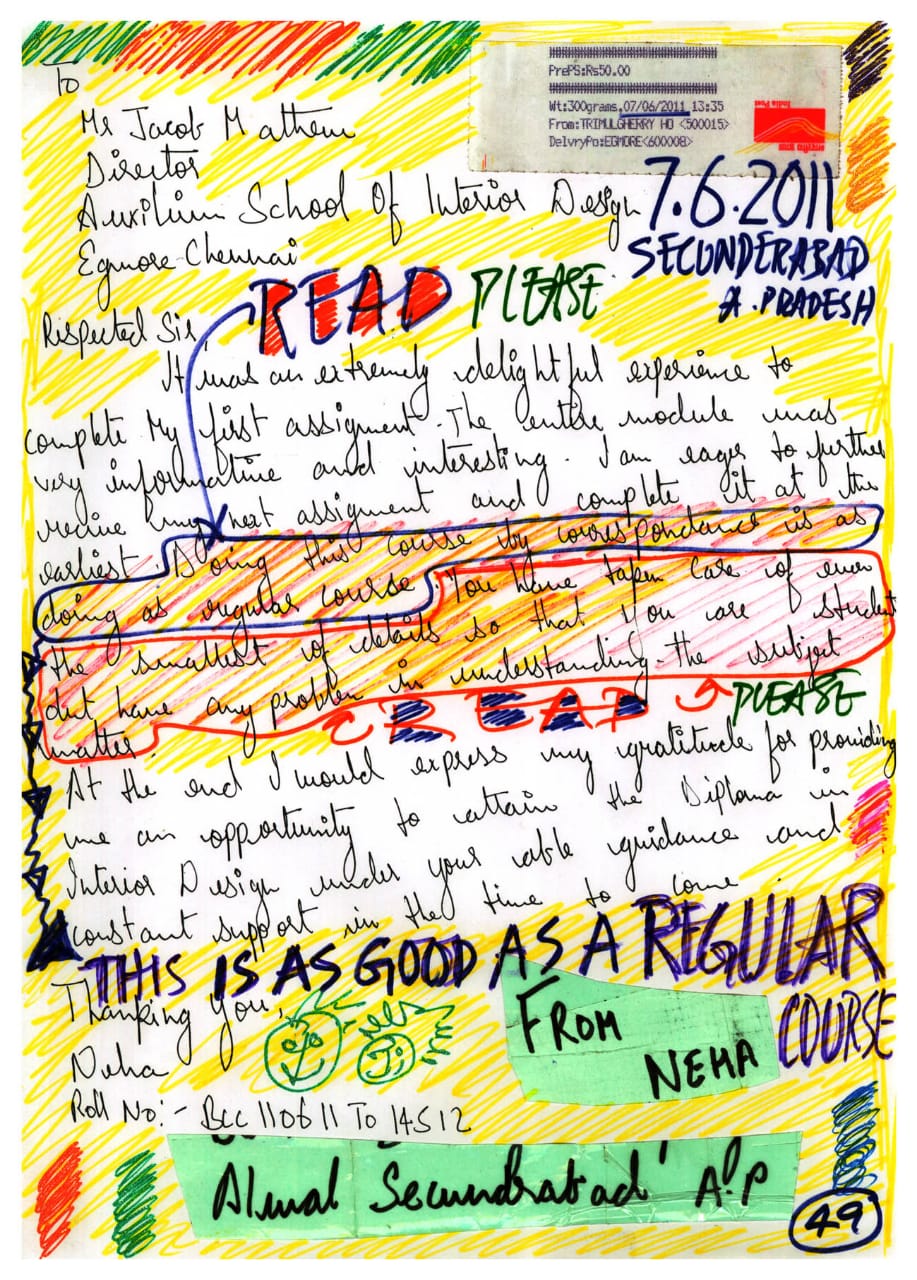 To
Mr Jacob Mathew
Director
Auxilium School Of Interior Design
Egmore Chennai
PrePS:Rs50.00
Wt:300grams,07/06/2011,13:35
From:TRIMULGHERRY HO <500015>
DelvryPo:EGMORE<600008>
India Post
7.6.2011
SECUNDERABAD
A.PRADESH
READ PLEASE
Respected Sir
It was an extremely delightful experience to
complete My first assigment. The entire module was
very informative and interesting. I am eager to further
recive my next assigment and complete it at the
earliest. Doing this course by correspondance is as
doing as regular course. You have taken care of even
the smallest of details so that you are student
dut have any problem in understanding the subject
matter.
READ PLEASE
At the end I would express my gratitude for providing
me an opportunity to attain the Diploma in
Interior Design under your able guidance and
constant support in the time to come.
THIS IS AS GOOD AS A REGULAR
COURSE
Thanking You,
Neha
Roll No:- BCC 110611 To 14512
FROM
NEHA
Alwal Secundrabad A.P
49